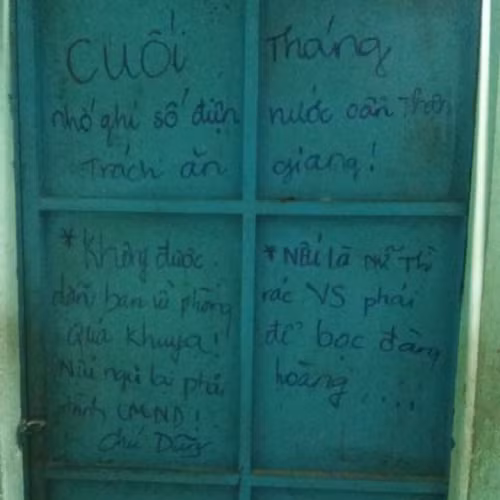 CUỐI Tháng
nhớ ghi số điện nước cẩn Thận
Trách ăn giang!
* Không được
dẫn bạn về phòng
Quá khuya!
Nếu ngủ lại phải
trình CMND!
Chú Dũng
* Nếu là nữ Thì
rác VS phải
để bọc đàng
hoàng....